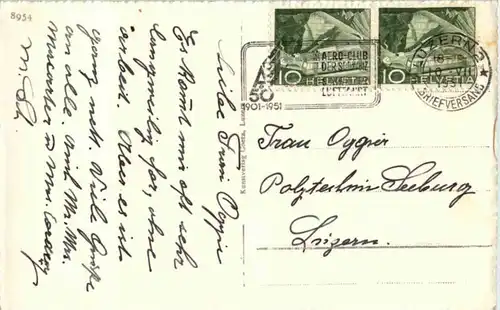 8954
Liebe Frau Oggier
Es kommt mir oft sehr
langweilig vor, ohne
Arbeit. Aber es ist
ganz nett. Viele Grüsse
an alle, auch Mr. Mrs.
Macarter &
M. Sch.
Kunstverlag Goetz, Luzern
HELVETIA
10
HELVETIA
10
50
1901-1951
AERO-CLUB
DER SCHWEIZ
LUFTFAHRT
LUZERN 2
BRIEFVERSAND
Frau Oggier
Polytechnic Seeburg
Luzern.